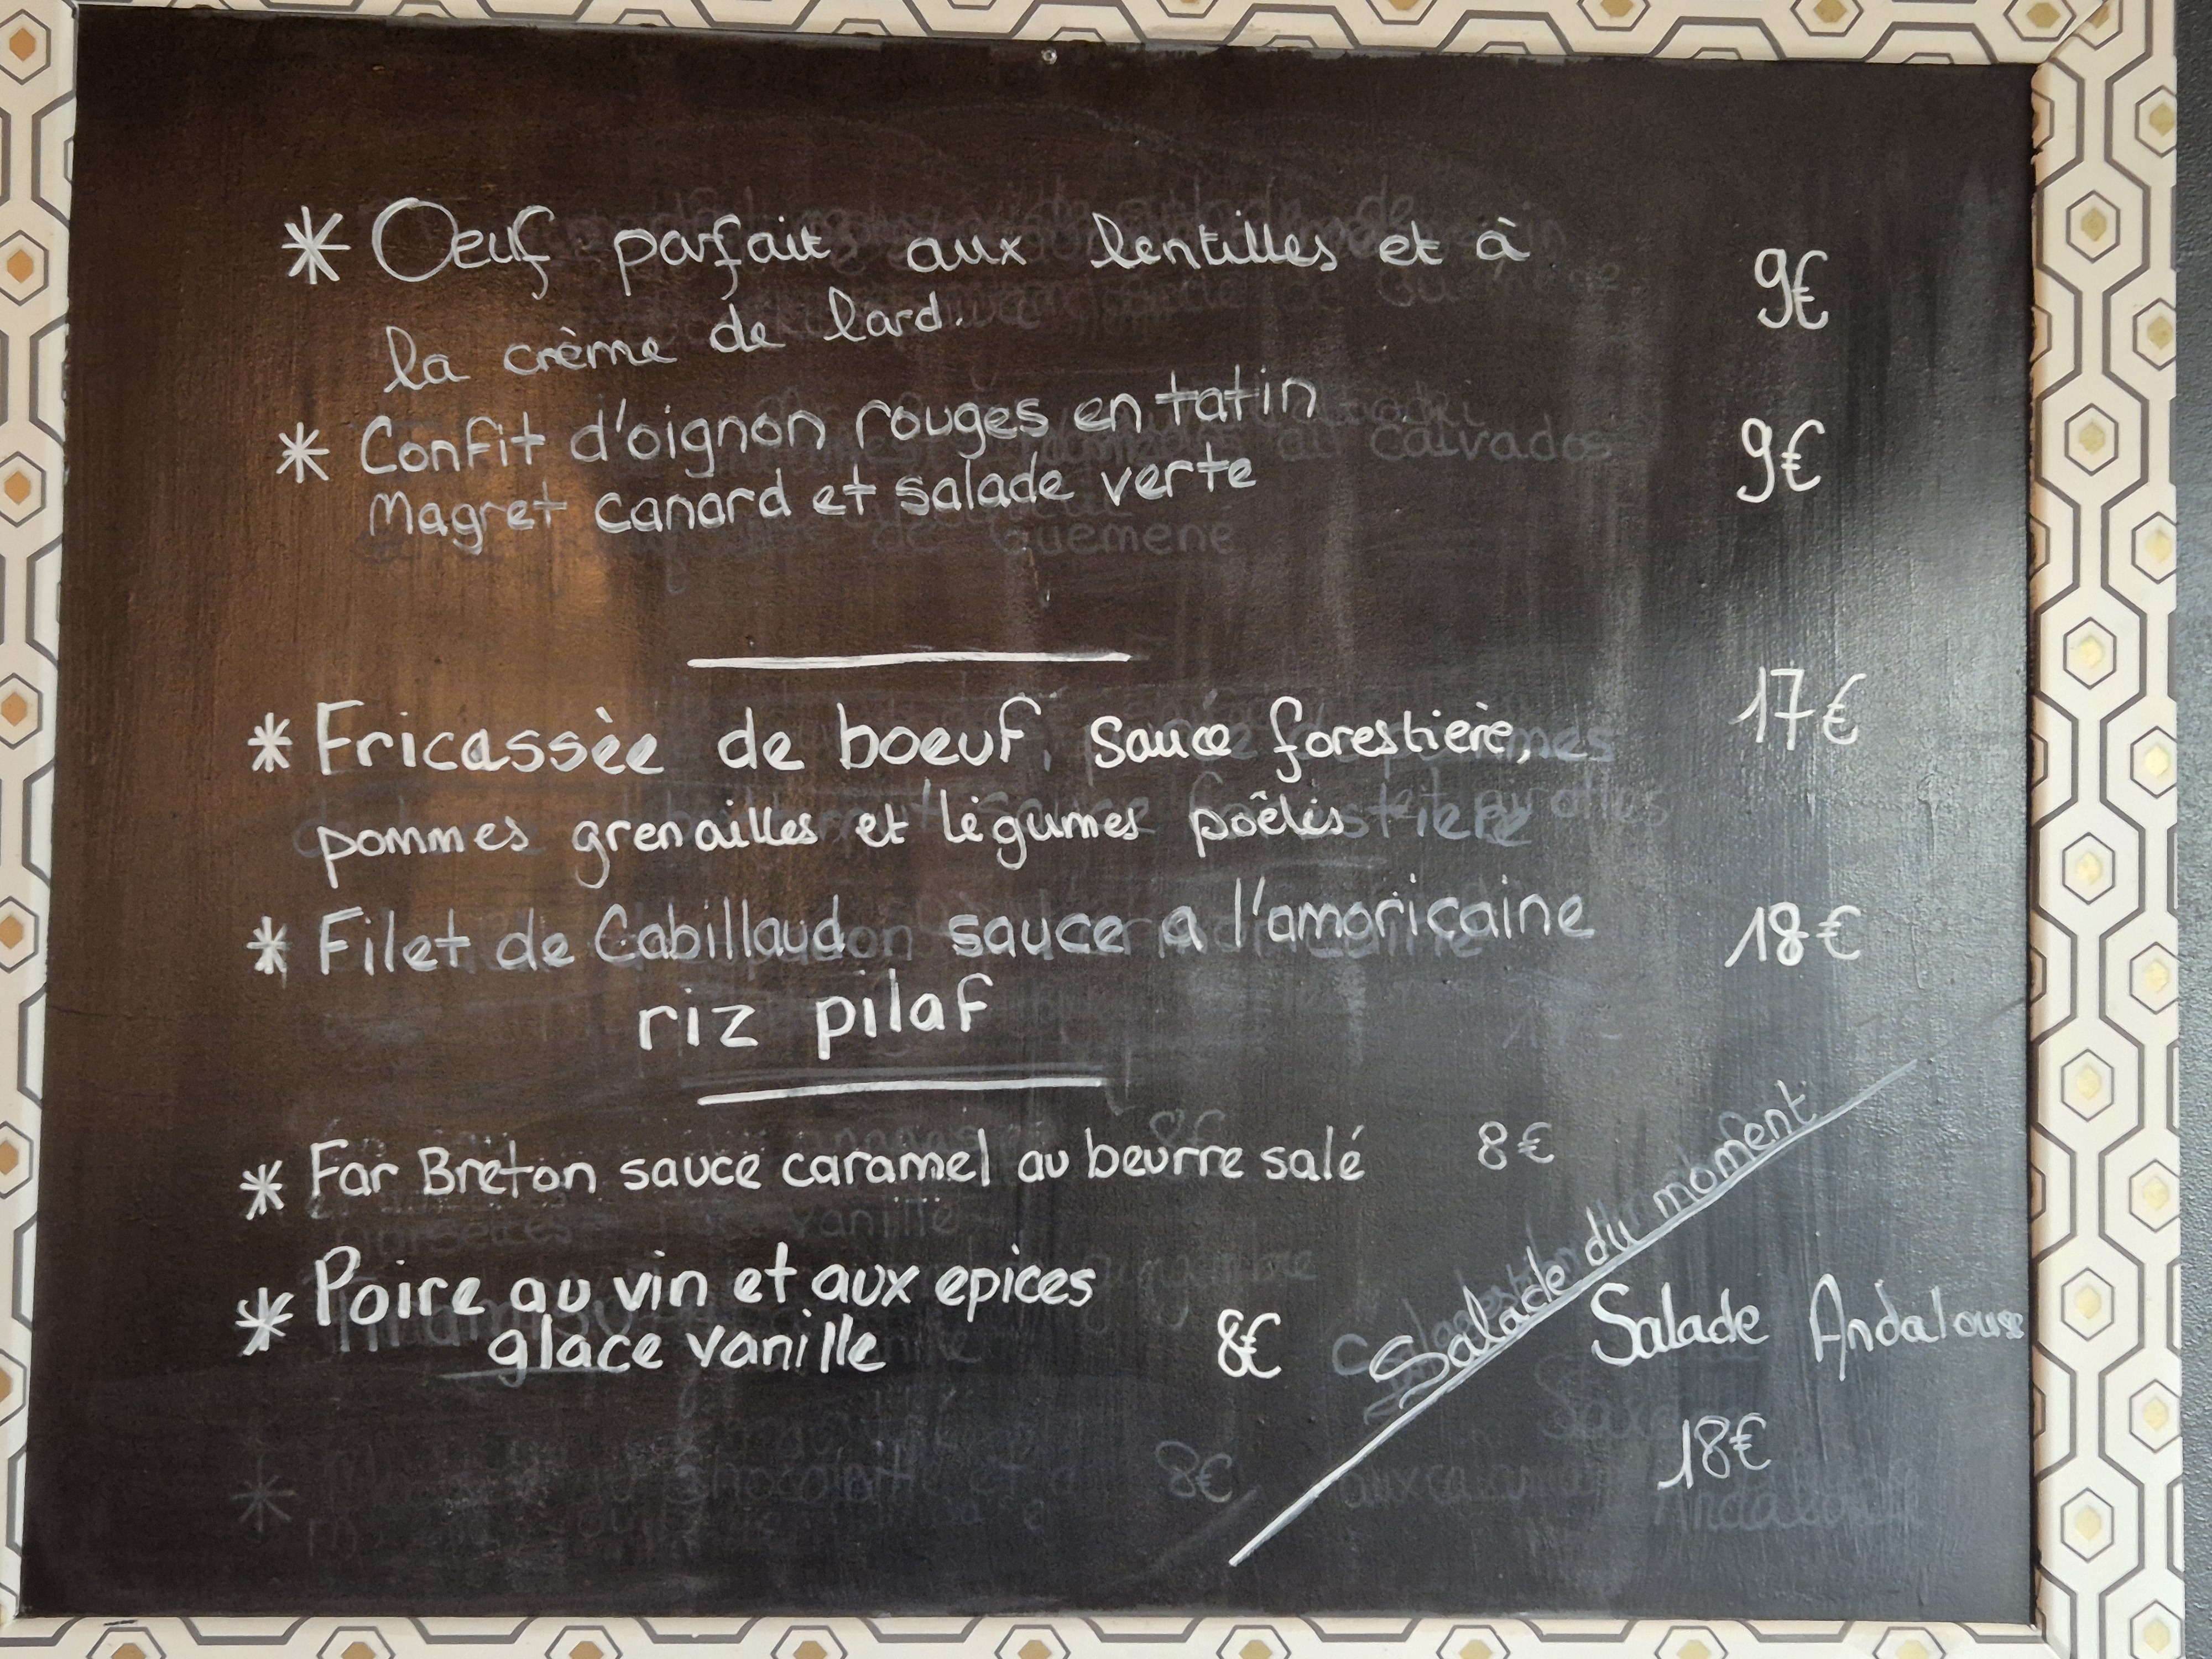 * Oeuf parfait aux lentilles et à
la crème de lard. 9€
* Confit d'oignon rouges en tatin
Magret canard et salade verte 9€
* Fricassèe de boeuf, sauce forestière, 17€
pommes grenailles et légumes poêlés
* Filet de Cabillaud sauce a l'amoricaine 18€
riz pilaf
* Far Breton sauce caramel au beurre salé 8€
* Poire au vin et aux epices
glace vanille 8€
Salade du moment
Salade Andalouse
18€